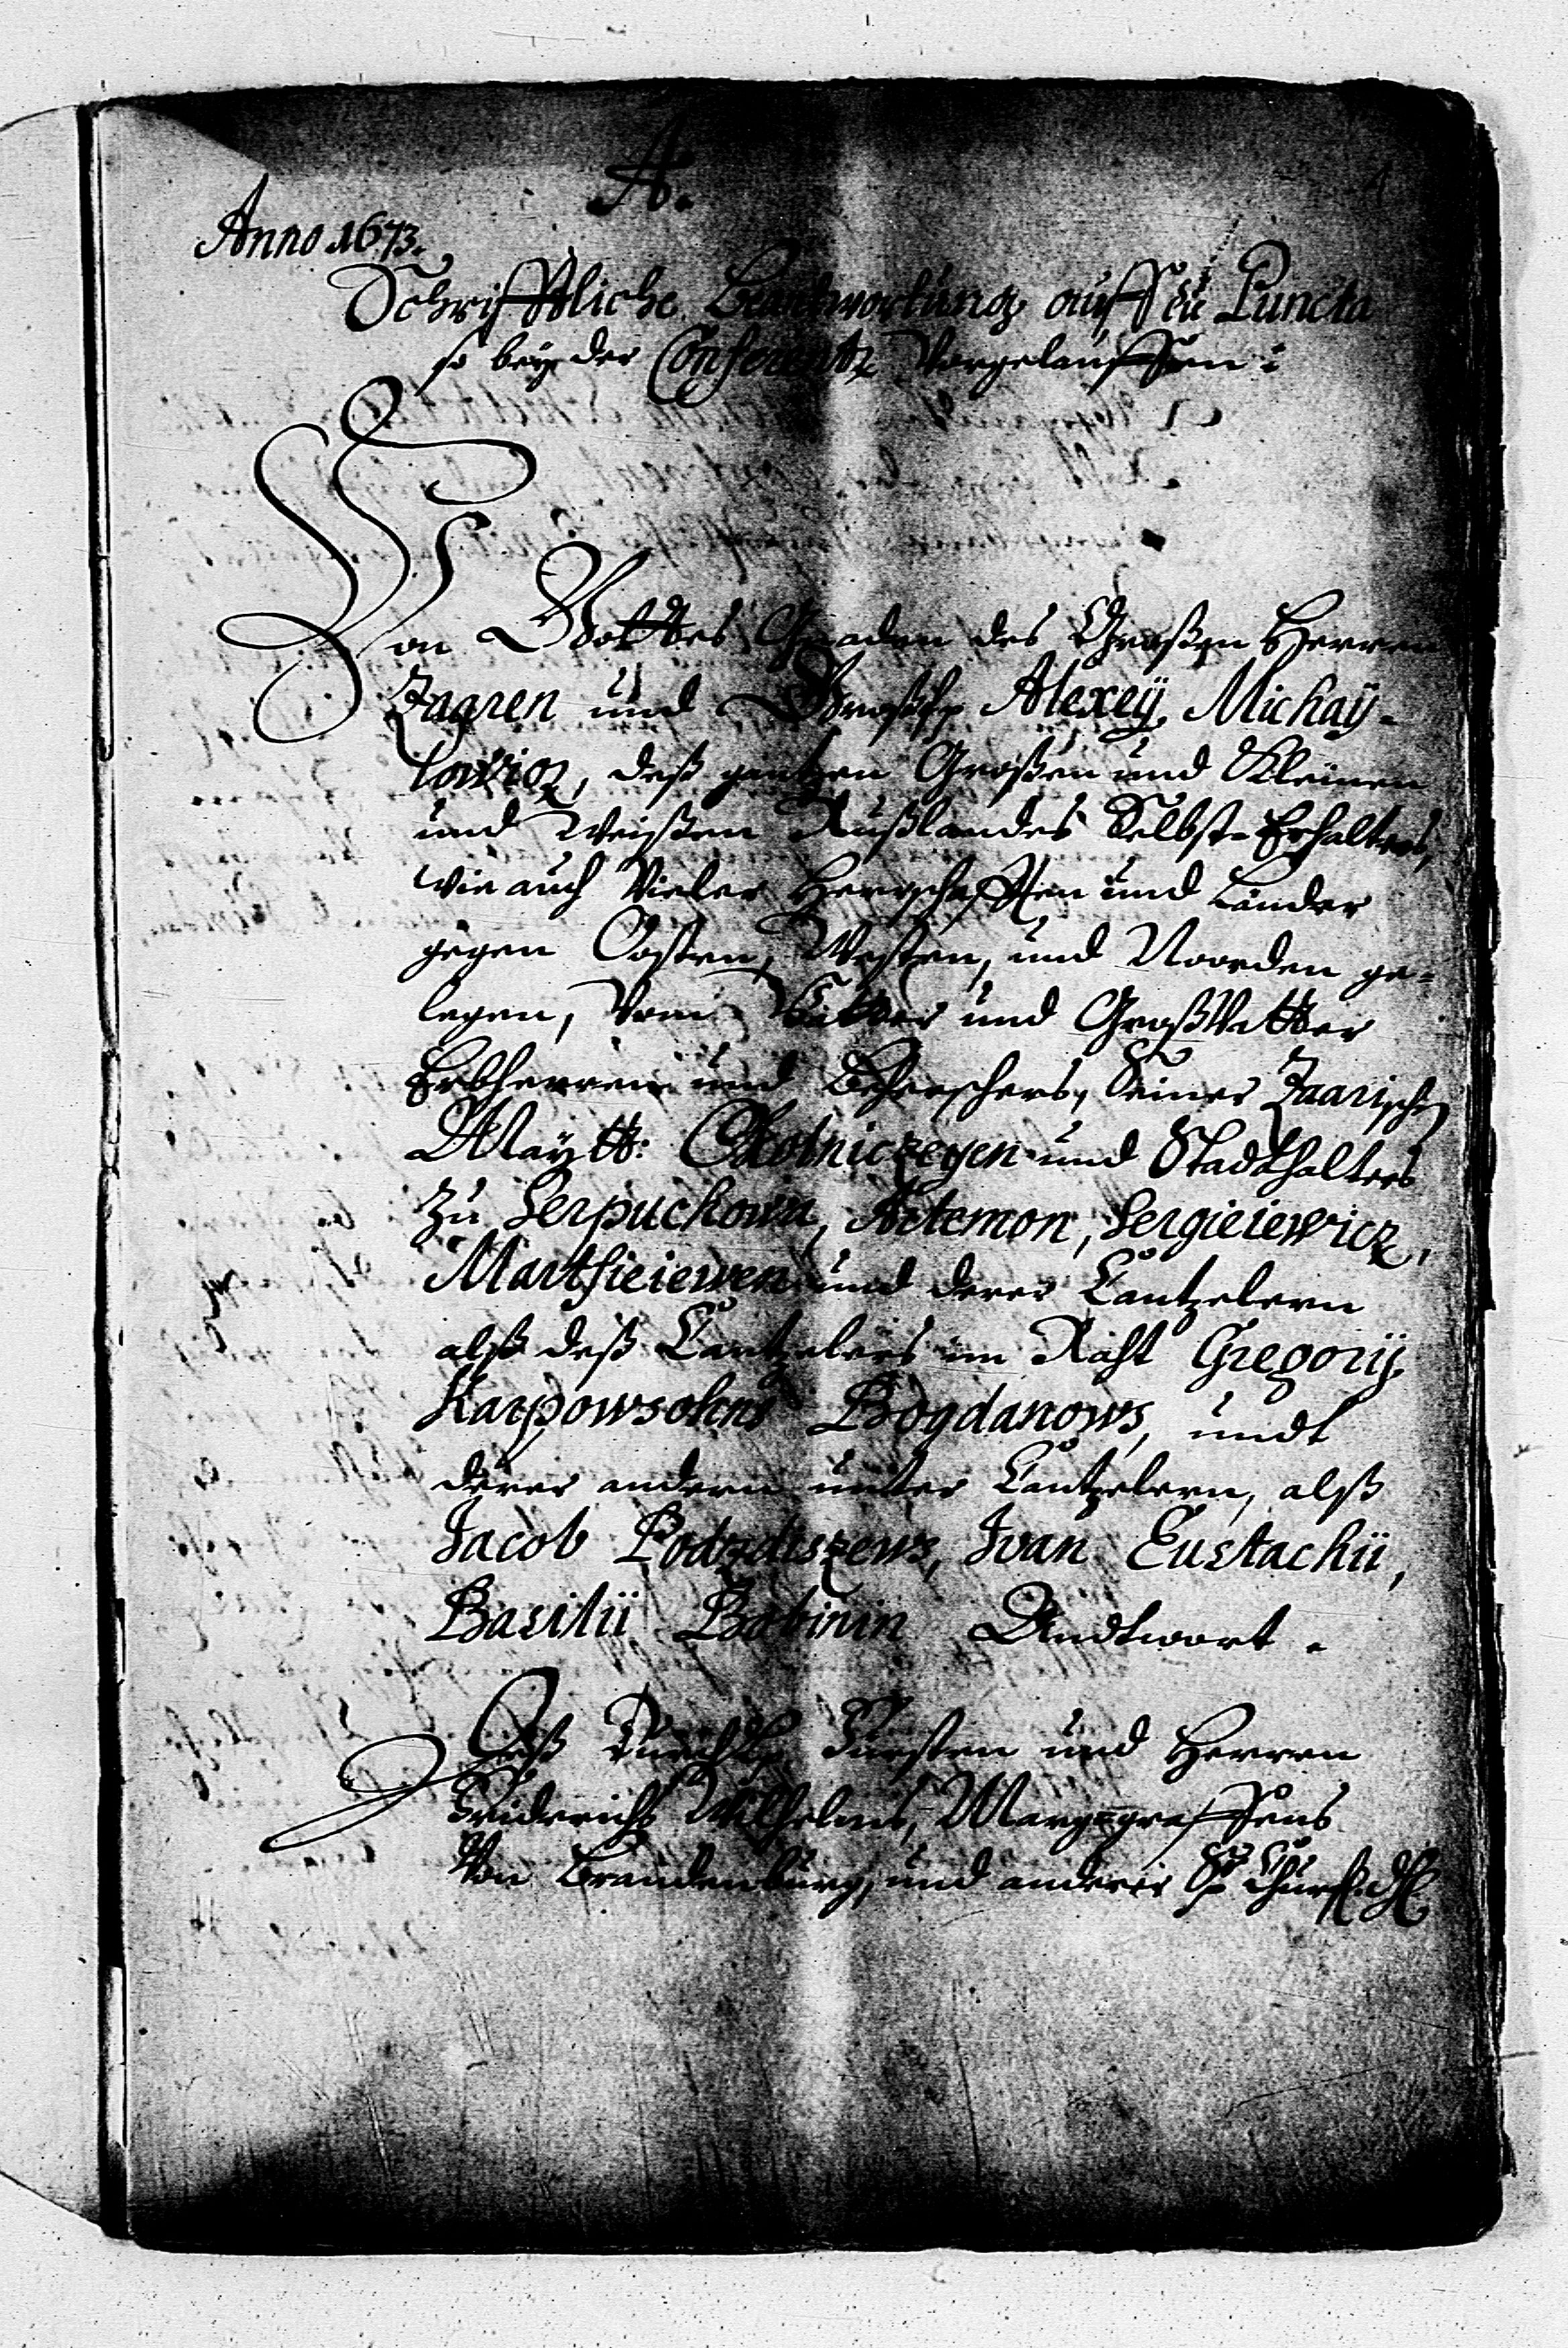 A.
Anno 1673.
Schrifftliche Beantwortung auff die Puncta
so beÿ der Conferentz Vorgelauffen:
Von Gottes Gnaden des Großen Herren
Zaaren und Großf. Alexeÿ Michaÿ-
lowicz, deß gantzen Großen und Kleinen
und Weißen Rußlandes Selbst-Erhalters,
wie auch Vieler Herrschafften und Länder
gegen Oosten, Westen, und Noorden ge-
legen, Vom Vatter und Großvatter
Erbherren und Beherschers, Seiner Zaarischen
Maÿtt: Okolniczeyen und Stadthalters
zu Serpuchowa, Artemon, Sergieiewicz,
Martfieiewen und derer Cantzelern
alß deß Cantzelers im Raht Gregorij
Karpowsohns Bogdanows, undt
derer andern unter Cantzelern, alß
Jacob Podzdiszews, Ivan Eustachii,
Basilii Bobinin Andtwort.
Deß Durchl. Fürsten und Herren
Friderichs Wilhelms, Marggraffens
Von Brandenburg, und anderer Sr Churf. Dl.